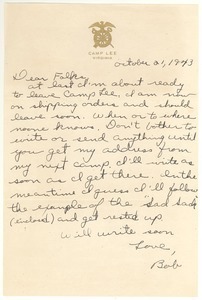 CAMP LEE
VIRGINIA
October 21, 1943
Dear Folks,
at last I'm about ready
to leave Camp Lee. I am now
on shipping orders and should
leave soon. When or to where
noone knows. Don't bother to
write or send anything until
you get my address from
my next camp. I'll write as
soon as I get there. In the
meantime I guess I'll follow
the example of the "Sad Sack"
(inclosed) and get rested up
Will write soon
Love,
Bob